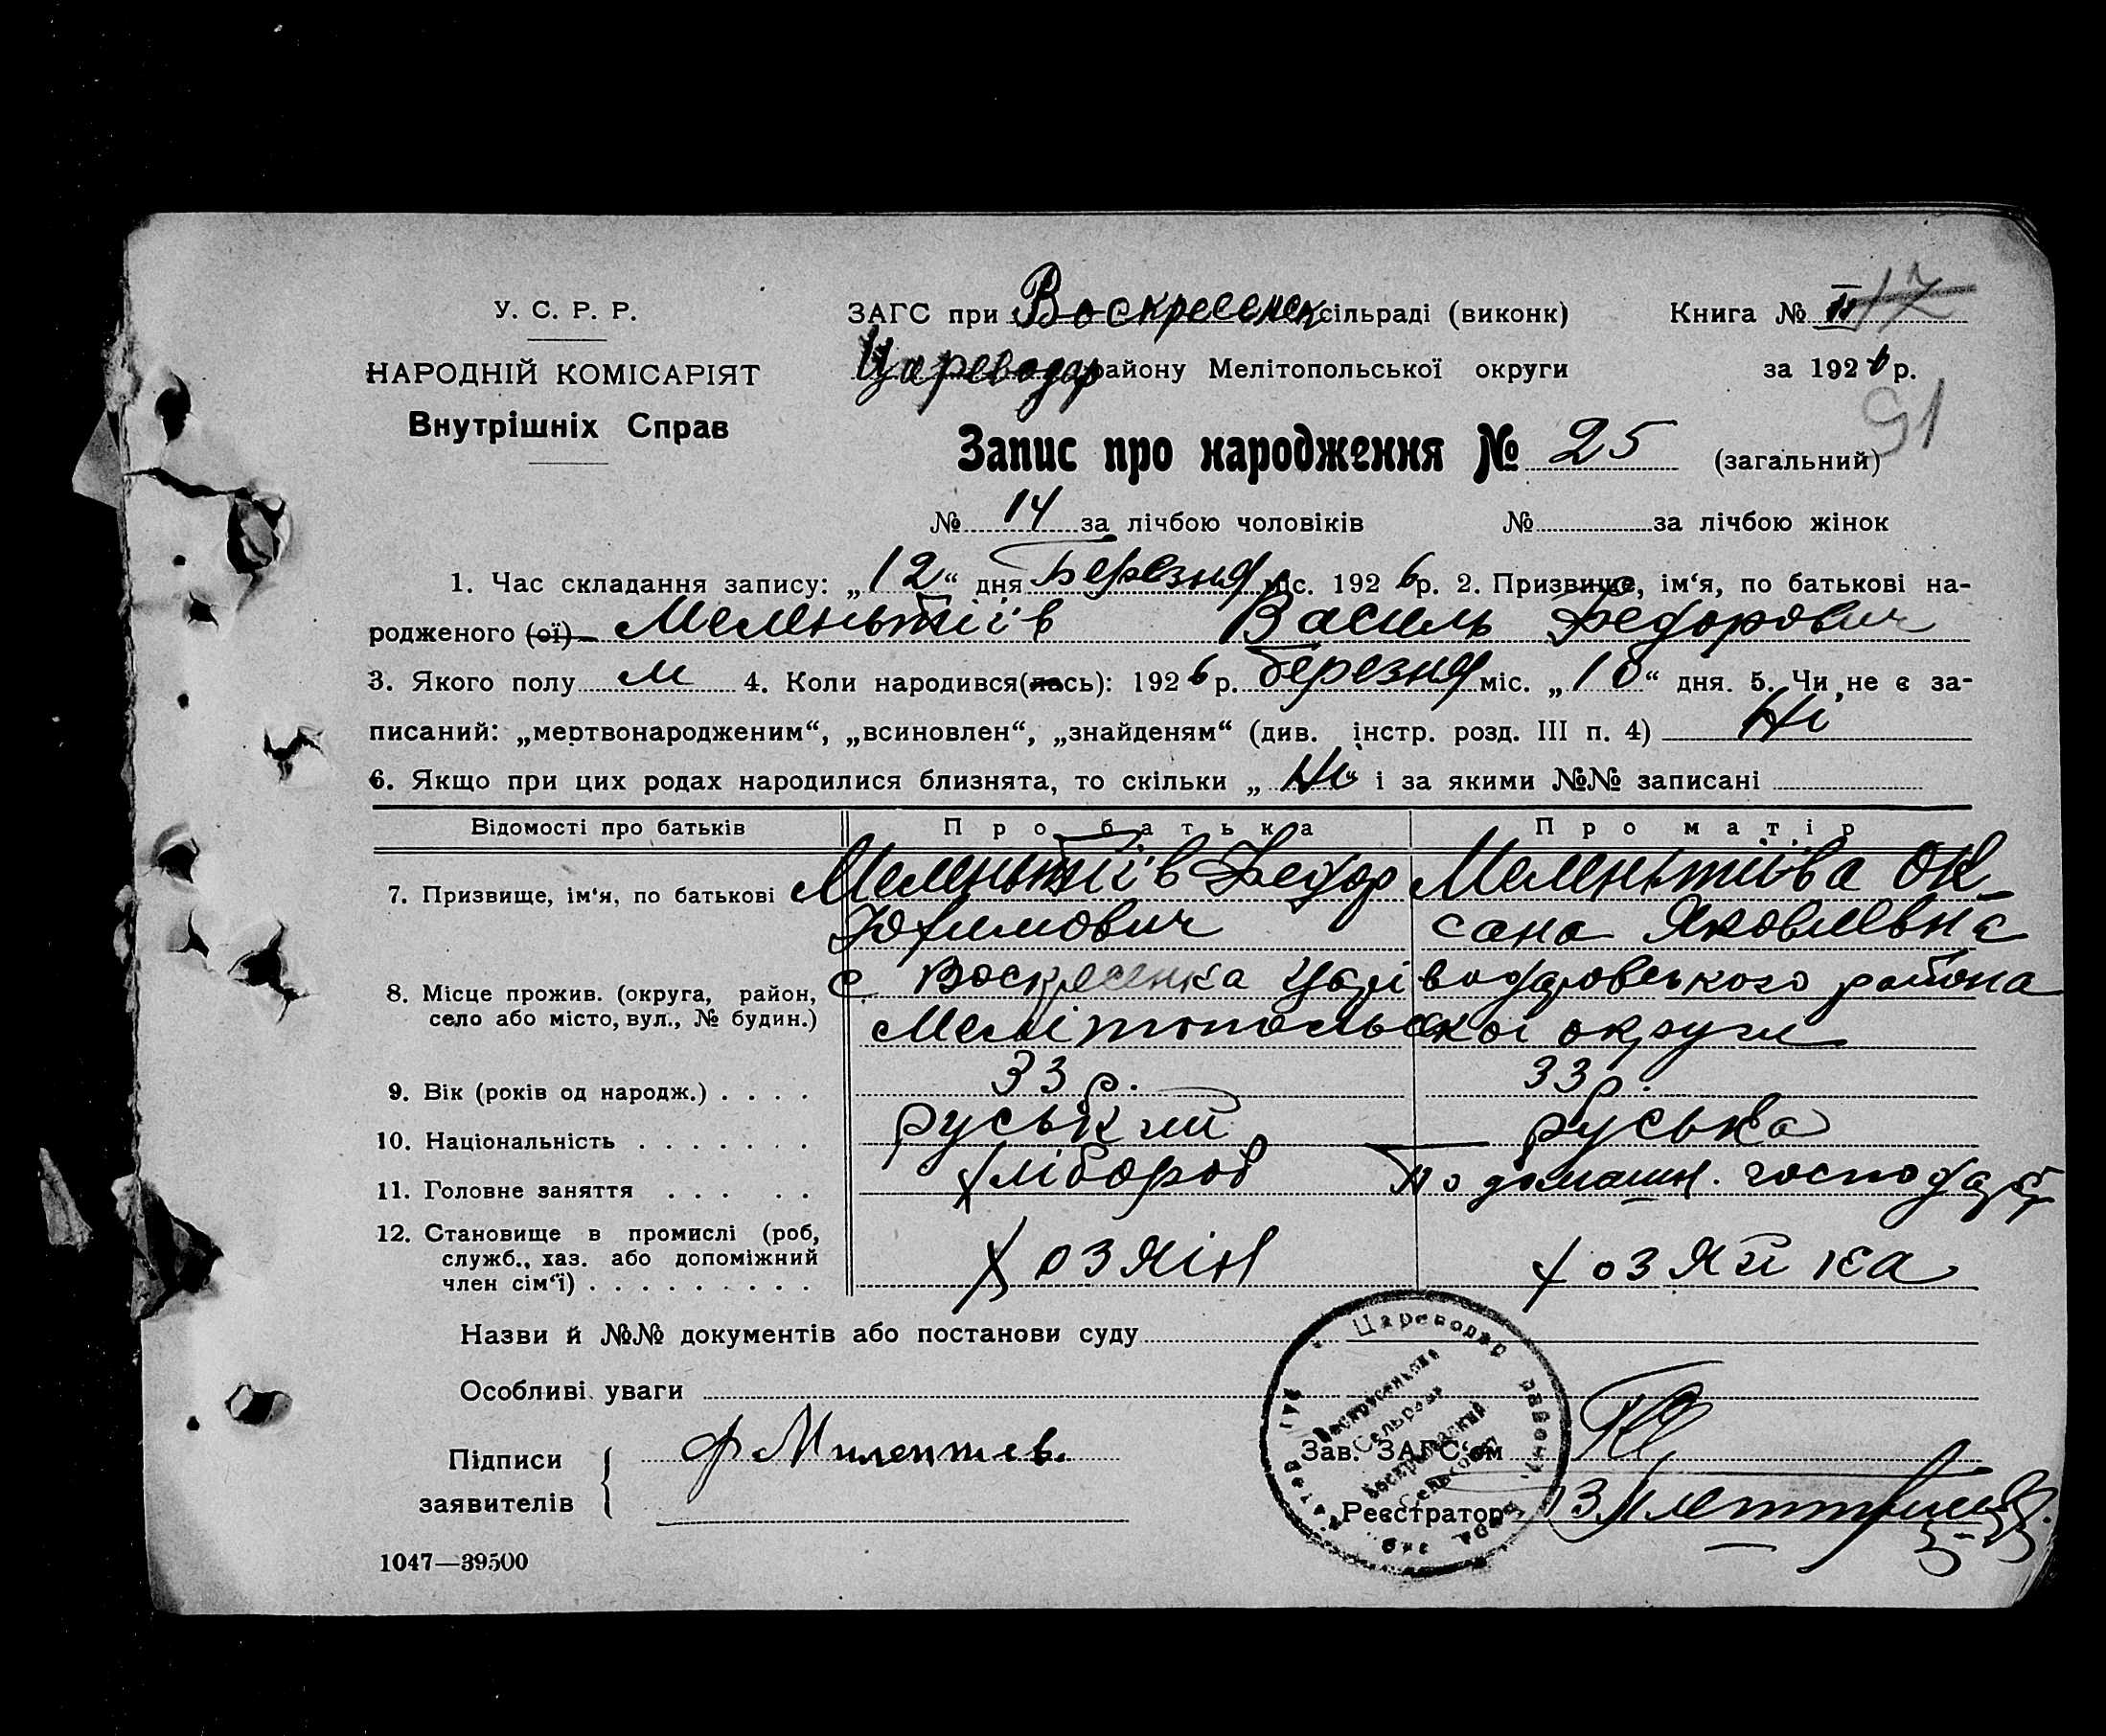 У. С. Р. Р.
НАРОДНІЙ КОМІСАРІЯТ
Внутрішніх Справ
ЗАГС при Воскресенск сільраді (виконк)
Книга № II 17
Цареводар району Мелітопольської округи
за 1926 р.
91
Запис про народження № 25 (загальний)
№ 14 за лічбою чоловіків №  за лічбою жінок
1. Час складання запису: „12“ дня Березня міс. 1926 р. 2. Призвище, ім‘я, по батькові на-
родженого (ої) Меленьтіїв Василь Федорович
3. Якого полу м 4. Коли народився(лась): 1926 р. березня міс. „10“ дня. 5. Чи не є за-
писаний: „мертвонародженим“, „всиновлен“, „знайденям“ (див. інстр. розд. III п. 4) Ні
6. Якщо при цих родах народилися близнята, то скільки „Ні“ і за якими №№ записані
Відомості про батьків Про батька Про матір
7. Призвище, ім‘я, по батькові Меленьтіїв Федор Меленьтиіва Ок
Юхимович сана Яковлевна
8. Місце прожив. (округа, район, село або місто, вул., № будин.) с Воскресенка Царіводаровського района
Мелітопольської округи
9. Вік (років од народж.) . . . . 33 р. 33 р.
10. Національність . . . . . . . руський руська
11. Головне заняття . . . . . хлібороб По домашн. господар
12. Становище в промислі (роб,
служб., хаз. або допоміжний
член сім‘ї) . . . . . . . . . хозяін хозяйка
Назви й №№ документів або постанови суду
Особливі уваги
Підписи
заявителів
Ф Милентев.
Зав. ЗАГС‘ом
Реєстратор
Цареводар
Сельрада
1047—39500